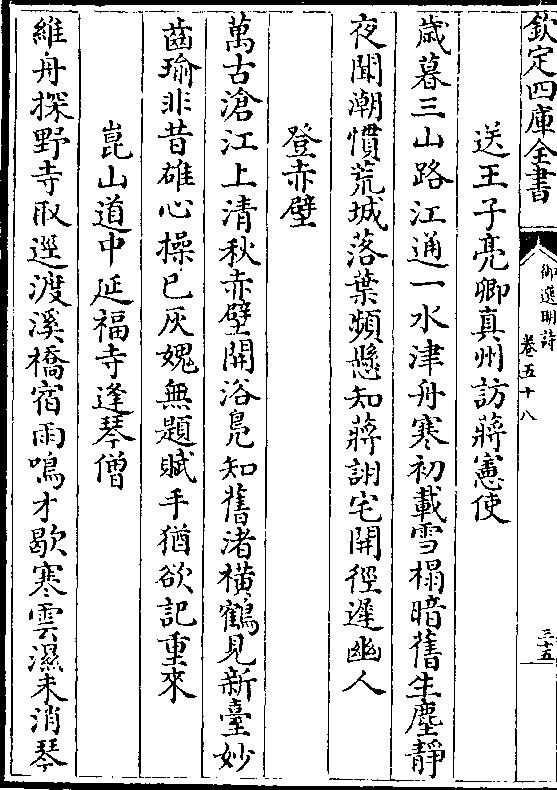 欽定四庫全書
御選明詩
卷五十八
三十五
送王子亮卿真州訪蔣憲使
歲暮三山路江通一水津舟寒初載雪榻暗舊生塵靜
夜聞潮慣荒城落葉頻懸知蔣詡宅開徑遲幽人
登赤壁
萬古滄江上清秋赤壁開浴鳧知舊渚橫鶴見新臺妙
齒瑜非昔雄心操已灰媿無題賦手猶欲記重來
崑山道中延福寺逢琴僧
維舟探野寺取逕渡溪橋宿雨鳴才歇寒雲濕未消琴